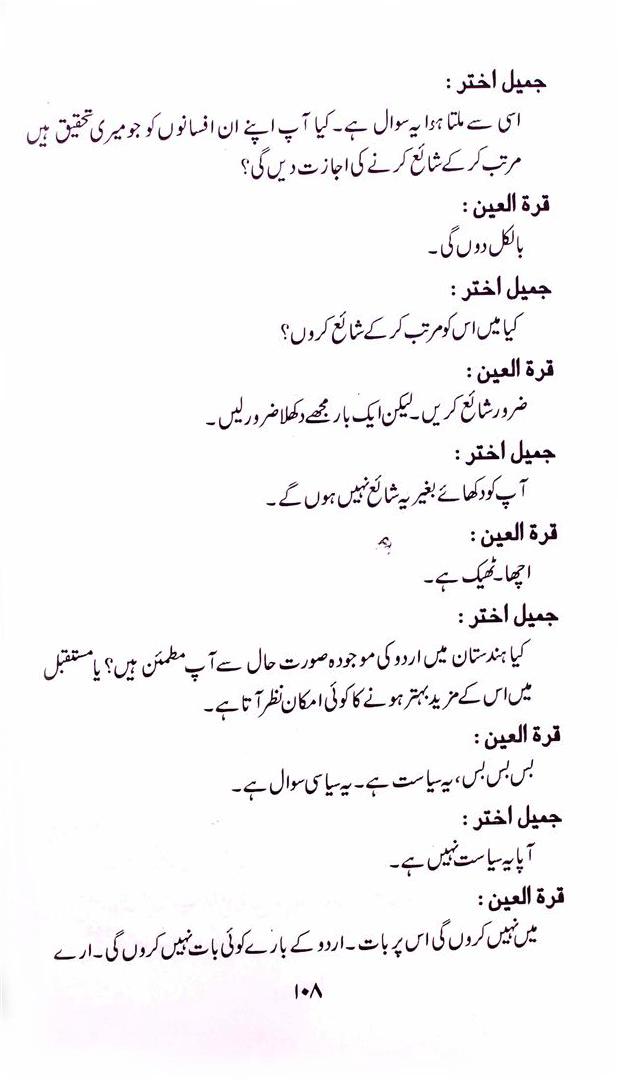 جمیل اختر :
اسی سے ملتا ہوا یہ سوال ہے۔ کیا آپ اپنے ان افسانوں کو جو میری تحقیق ہیں
مرتب کر کے شائع کرنے کی اجازت دیں گی؟
قرة العین :
بالکل دوں گی۔
جمیل اختر :
کیا میں اس کو مرتب کر کے شائع کروں؟
قرة العین :
ضرور شائع کریں۔ لیکن ایک بار مجھے دکھلا ضرور لیں۔
جمیل اختر :
آپ کو دکھائے بغیر یہ شائع نہیں ہوں گے۔
قرة العین :
اچھا۔ ٹھیک ہے۔
جمیل اختر :
کیا ہندستان میں اردو کی موجودہ صورت حال سے آپ مطمئن ہیں؟ یا مستقبل
میں اس کے مزید بہتر ہونے کا کوئی امکان نظر آتا ہے۔
قرة العین :
بس بس بس، یہ سیاست ہے۔ یہ سیاسی سوال ہے۔
جمیل اختر :
آپا یہ سیاست نہیں ہے۔
قرة العین :
میں نہیں کروں گی اس پر بات۔ اردو کے بارے کوئی بات نہیں کروں گی۔ ارے
۱۰۸